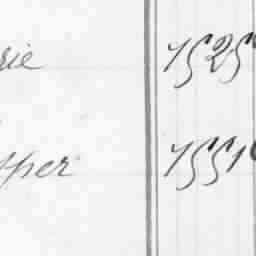 rie 1525
pper 1551